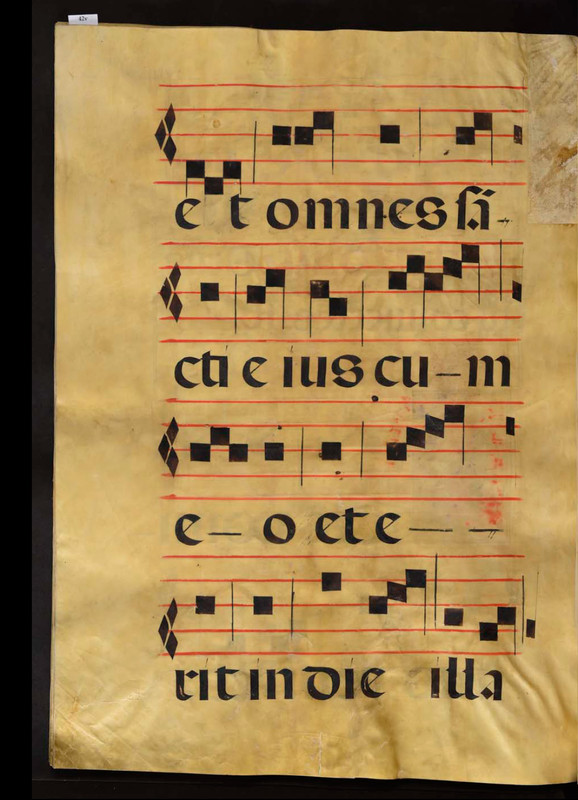 42v
et omnes sã-
cti eius cu-m
e- o et e- -
rit in die illa